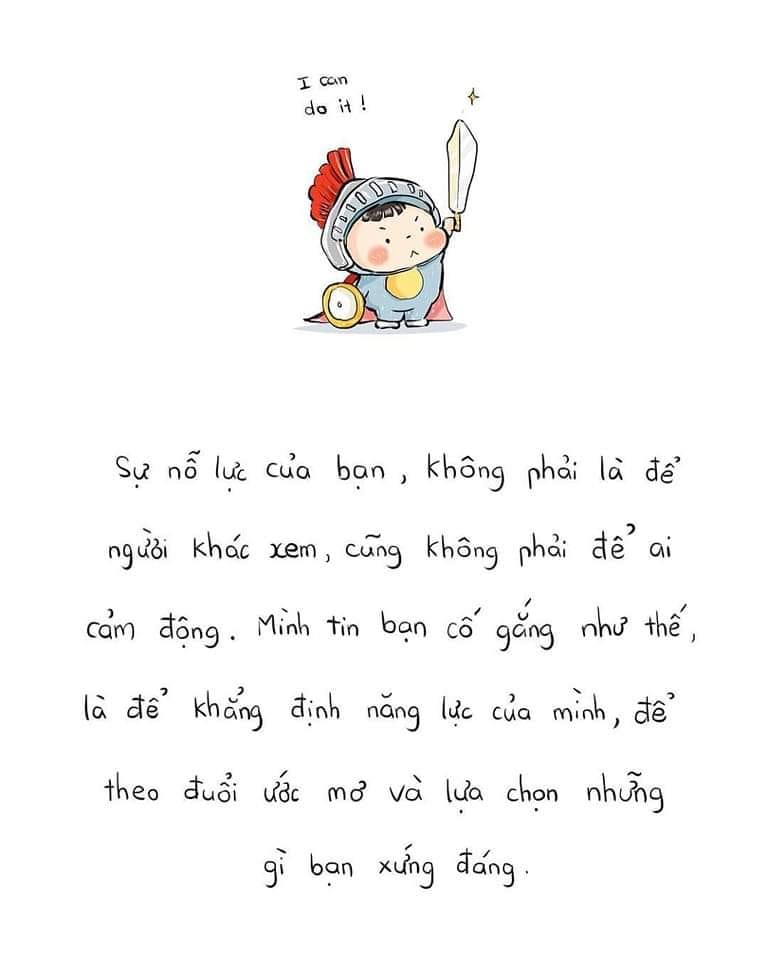 I can
do it!
Sự nỗ lực của bạn, không phải là để
người khác xem, cũng không phải để ai
cảm động. Mình tin bạn cố gắng như thế,
là để khẳng định năng lực của mình, để
theo đuổi ước mơ và lựa chọn những
gì bạn xứng đáng.